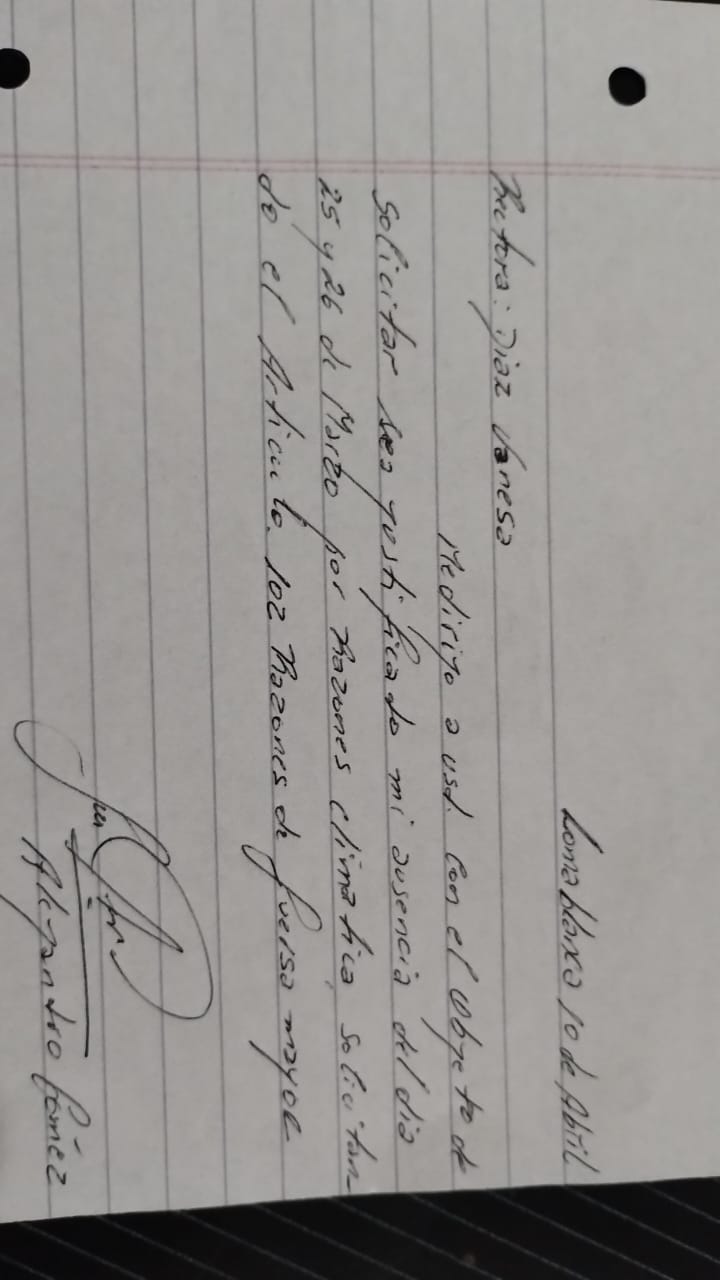 Loma blanca 10 de Abril
Rectora: Diaz Vanesa
Me dirijo a usd. Con el Objeto de
Solicitar sea justificado mi ausencia del dia
25 y 26 de Marzo por Razones climatica solicitan-
do el Articulo. 102 Razones de fuersa mayor
Alejandro Goméz